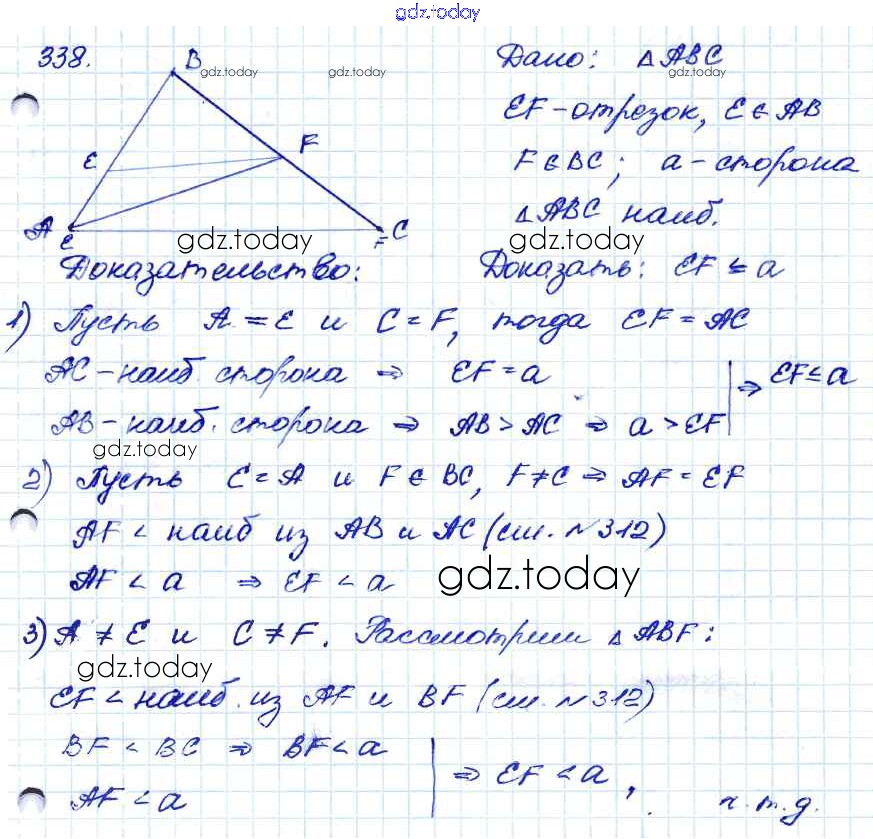 gdz.today
338.
B
gdz.today
gdz.today
Дано: △ABC
gdz.today
EF-отрезок, E∈AB
E
F
F∈BC; a-сторона
△ABC наиб.
A
E
F
C
gdz.today
gdz.today
Доказательство:
Доказать: EF ≤ a
1) Пусть A = E и C = F, тогда EF = AC
AC - наиб. сторона ⇒ EF = a
⇒ EF ≤ a
AB - наиб. сторона ⇒ AB > AC ⇒ a > EF
gdz.today
2) Пусть E = A и F ∈ BC, F ≠ C ⇒ AF = EF
AF < наиб из AB и AC (см. №312)
AF < a ⇒ EF < a
gdz.today
3) A ≠ E и C ≠ F. Рассмотрим △ABF:
gdz.today
EF < наиб. из AF и BF (см. №312)
BF < BC ⇒ BF < a
AF < a
⇒ EF < a,
ч.т.д.